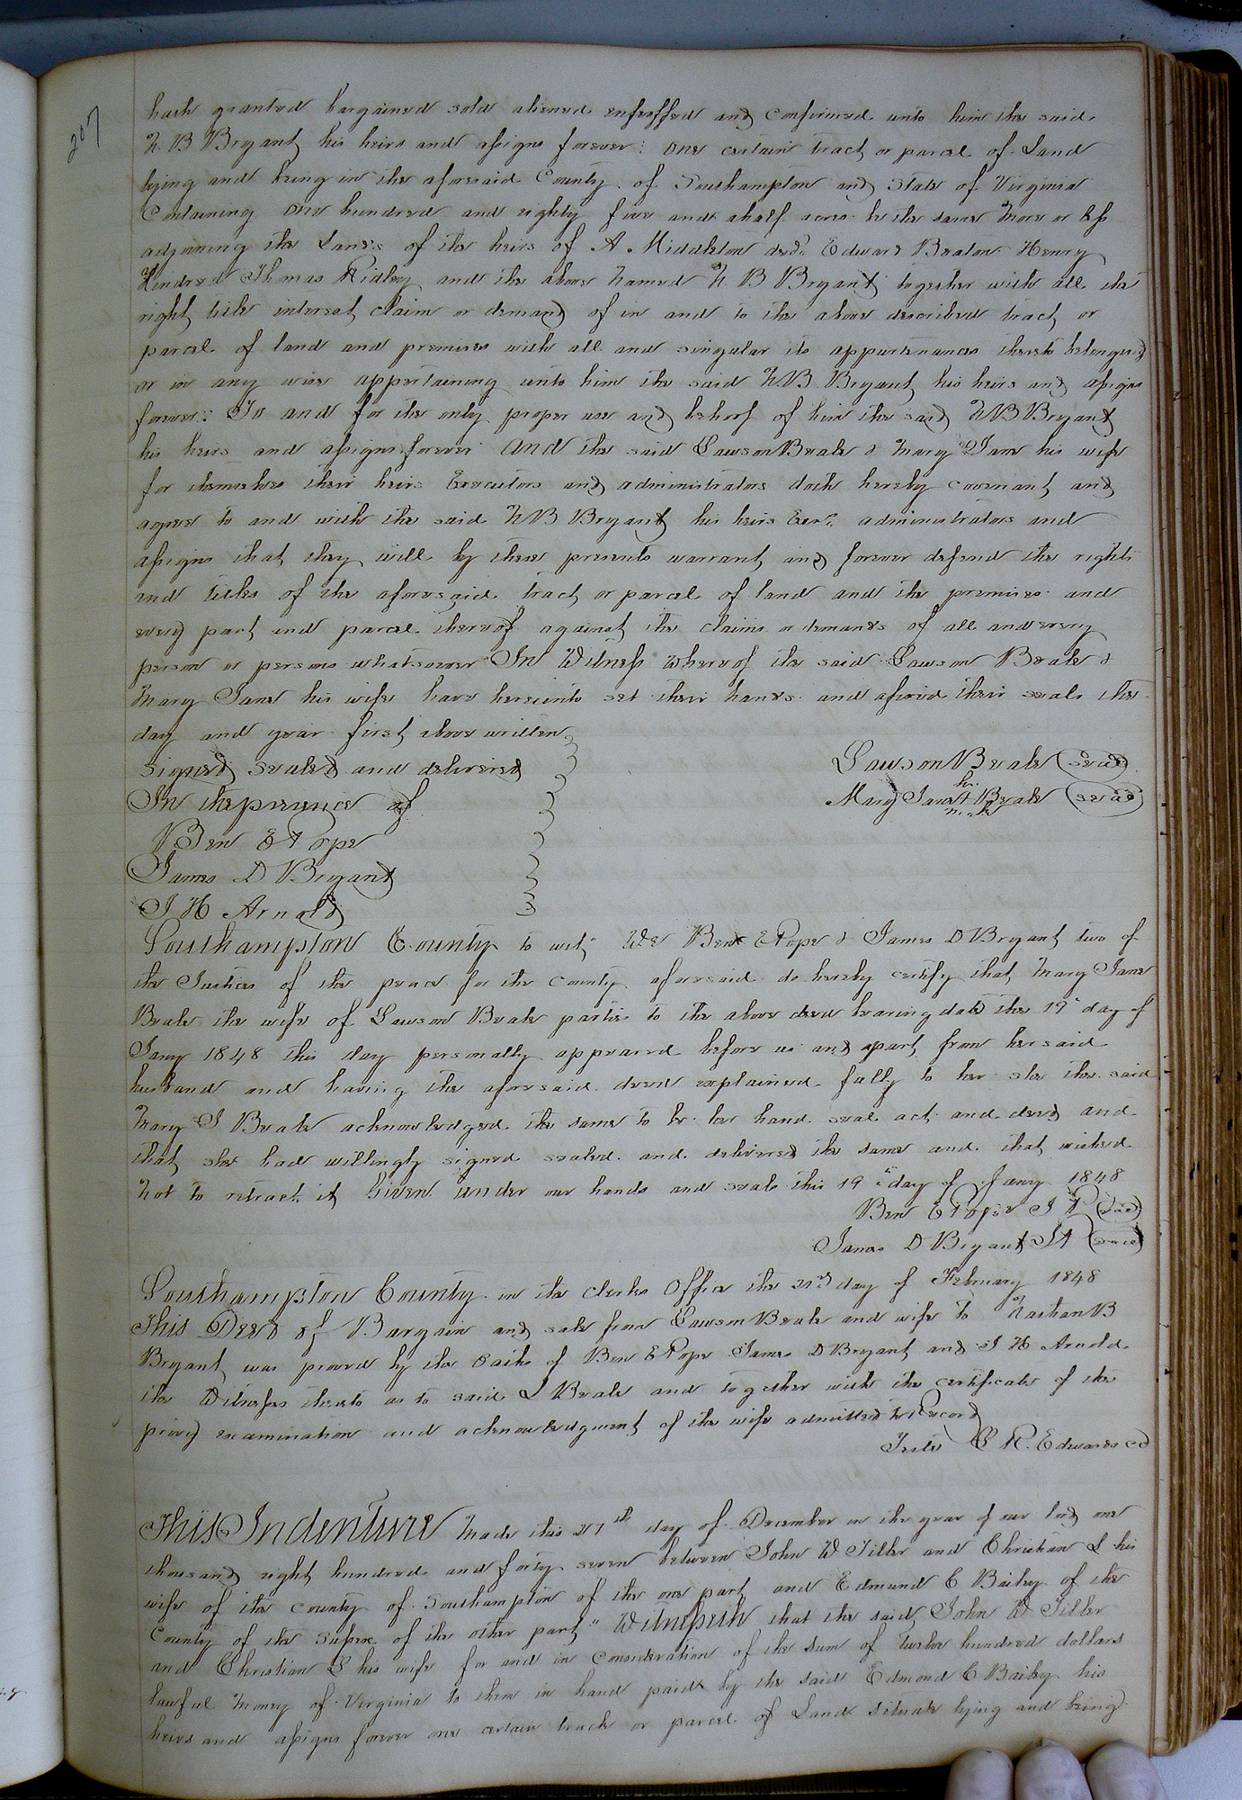 207
hath granted bargained sold aliened enfeoffed and confirmed unto him the said
N. B Bryant his heirs and assigns forever: one certain tract or parcel of Land
lying and being in the aforesaid County of Southampton and State of Virginia
Containing One hundred and eighty five and a half acres be the same More or less
adjoining the Lands of the heirs of A Middleton decd. Edward Beaton Henry
Kindred Thomas Ridley and the above Named N. B Bryant together with all the
right title interest claim or demand of in and to the above described tract or
parcel of land and premises with all and singular its appurtenances thereto belonging
or in any wise appertaining unto him the said N B Bryant his heirs and assigns
forever: To and for the only proper use and behoof of him the said N B Bryant
his heirs and assigns forever And the said Lawson Beale & Mary Jane his wife
for themselves their heirs Executors and administrators doth hereby covenant and
agree to and with the said N B Bryant his heirs Exrs. administrators and
assigns that they will by these presents warrant and forever defend the rights
and titles of the aforesaid tract or parcel of land and the premises and
every part and parcel thereof against the claims or demands of all and every
person or persons whatsoever In Witness Whereof the said Lawson Beale &
Mary Jane his wife have hereunto set their hands and affixed their seals the
day and year first above written
Signed Sealed and delivered
Lawson Beale (seal)
In the presence of
her
Mary Jane + Beale (seal)
mark
Ben E Pope
James D Bryant
J H Arnold
Southampton County to wit: We Ben E Pope & James D Bryant two of
the Justices of the peace for the County aforesaid do hereby certify that Mary Jane
Beale the wife of Lawson Beale parties to the above deed bearing date the 19th day of
Jany 1848 this day personally appeared before us and apart from her said
husband and having the aforesaid deed explained fully to her she the said
Mary J Beale acknowledged the same to be her hand seal act and deed and
that she had willingly signed sealed and delivered the same and that wished
Not to retract it Given under our hands and seals this 19th day of Jany 1848
Ben E Pope J P (seal)
James D Bryant JP (seal)
Southampton County in the clerks Office the 21st day of February 1848
This Deed of Bargain and sale from Lawson Beale and wife to Nathan B
Bryant was proved by the oaths of Ben E Pope James D Bryant and J H Arnold
the Witnesses thereto as to said L Beale and together with the certificate of the
privy examination and acknowledgment of the wife admitted to Record
Teste L R. Edwards CC
This Indenture Made this 27th day of December in the year of our lord one
thousand eight hundred and forty seven between John W Tiller and Christian L his
wife of the County of Southampton of the one part and Edmund C Bailey of the
County of the Sussex of the other part" Witnesseth that the said John W Tiller
and Christian L his wife for and in Consideration of the Sum of twelve hundred dollars
lawful Money of Virginia to them in hand paid by the said Edmond C Bailey his
heirs and assigns forever one certain track or parcel of Land Situate lying and being